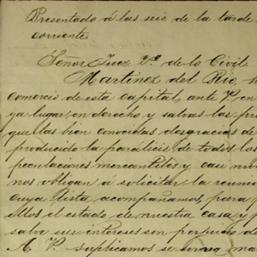 Presentado á las seis de la tarde
corriente.
Señor Juez 2º de lo Civil
Martinez del Rio, h
comercio de esta capital, ante V. en
ya lugar en derecho y salvas las pro
que las bien conocidas desgracias de
producido la parálisis de todos lo
peculaciones mercantiles y casi nu
nos obligan á solicitar la reunio
cuya lista acompañamos, para
ellos el estado de nuestra casa y
salve sus intereses sin perjuicio d
A V. suplicamos se sirva ma